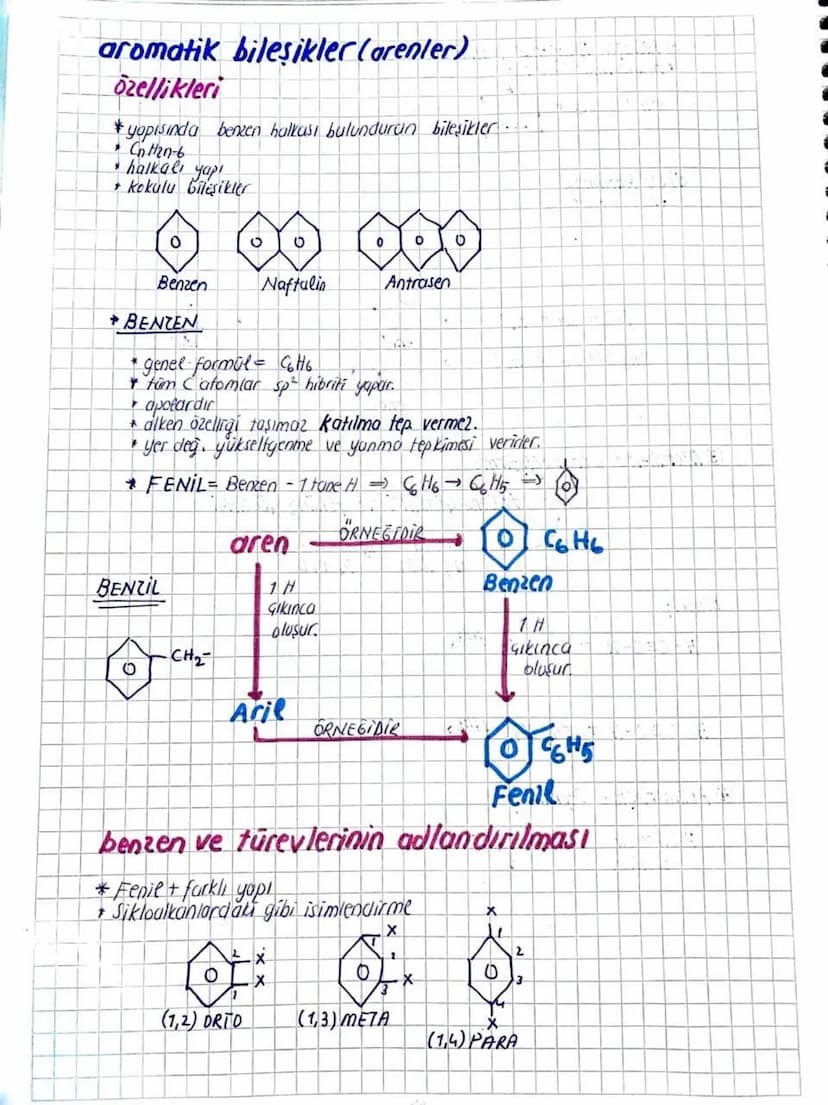 aromatik bileşikler (arenler)
özellikleri
* yapısında benzen halkası bulunduran bileşikler...
* CnH2n-6
* halkalı yapı
* kokulu bileşikler
Benzen Naftalin Antrasen
* BENZEN
* genel formül = C6H6
* tüm C atomlar sp² hibriti yapar.
* apolardır
* alken özelliği taşımaz katılma tep vermez.
* yer değ. yükseltgenme ve yanma tepkimesi verirler.
* FENİL = Benzen - 1 tane H ⇒ C6H6 → C6H5 ⇒
aren ÖRNEĞİDİR C6H6
Benzen
BENZİL
CH2-
1 H
çıkınca
oluşur.
1 H
çıkınca
oluşur.
Aril ÖRNEĞİDİR C6H5
Fenil
benzen ve türevlerinin adlandırılması
* Fenil + farklı yapı
* Sikloalkanlardaki gibi isimlendirme
2 X
1 X
(1,2) ORTO
1 X
2
3 X
(1,3) META
X
1
2
3
4
X
(1,4) PARA